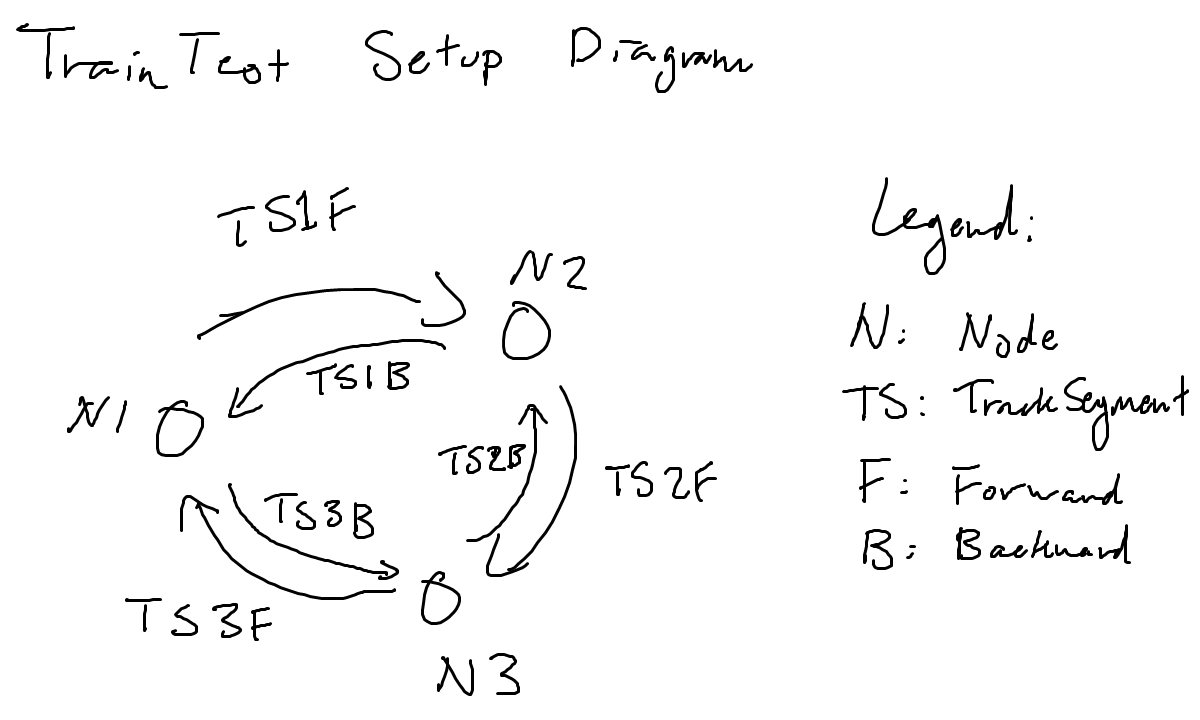 TrainTest Setup Diagram
TS1F
N2
TS1B
N1
TS2B
TS2F
TS3B
TS3F
N3
Legend:
N: Node
TS: TrackSegment
F: Forward
B: Backward